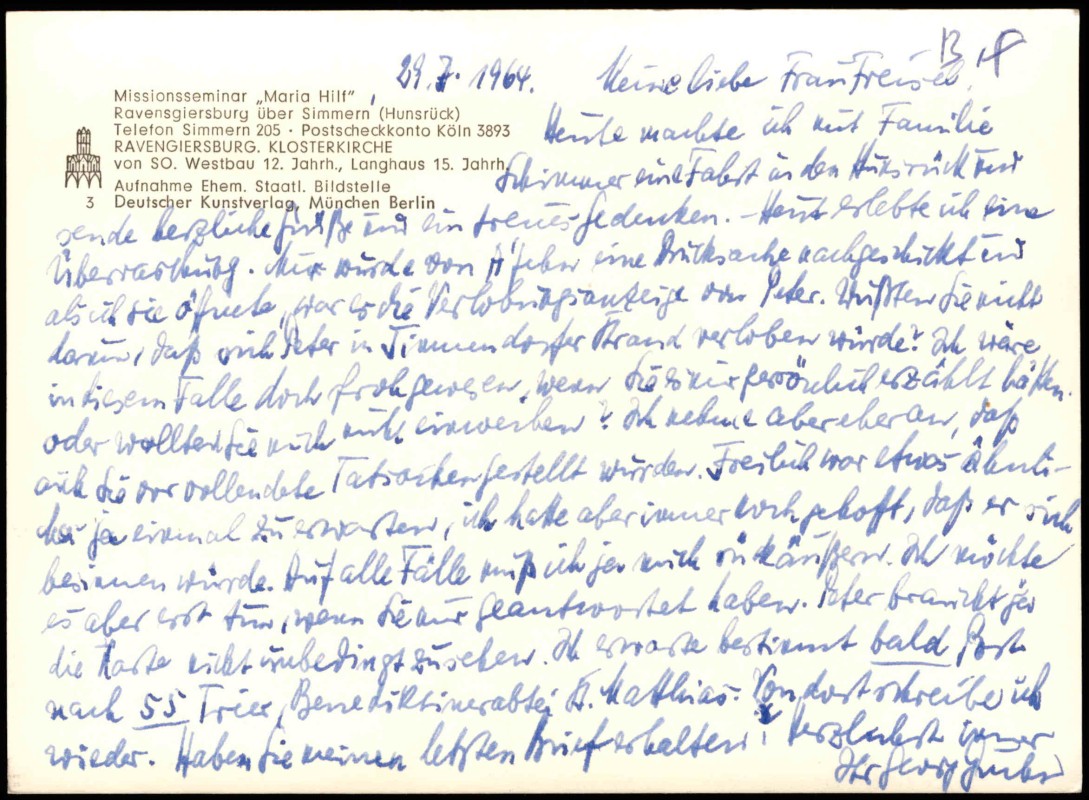 29.7.1964. Meine liebe Frau
Missionsseminar „Maria Hilf",
Ravengiersburg über Simmern (Hunsrück)
Telefon Simmern 205 · Postscheckkonto Köln 3893
RAVENGIERSBURG. KLOSTERKIRCHE
von SO. Westbau 12. Jahrh., Langhaus 15. Jahrh.
Aufnahme Ehem. Staatl. Bildstelle
3 Deutscher Kunstverlag, München Berlin
Heute machte ich mit Familie
Schirmer eine Fahrt in den Hunsrück und
sende herzliche Grüße und ein treues Gedenken. – Heut erlebte ich eine
Überraschung. Mir wurde von eine Drucksache nachgeschickt und
als ich sie öffnete, war es die Verlobungsanzeige von Peter. Wußten Sie nicht
darum, daß sich Peter in Timmendorfer Strand verloben würde? Ich wäre
in diesem Falle doch froh gewesen, wenn Sie es mir persönlich erzählt hätten.
oder wollten Sie mich nicht einweihen? Ich nehme aber eher an, daß
auch Sie vor vollendete Tatsachen gestellt wurden. Freilich war etwas ähnli-
ches ja einmal zu erwarten, ich hatte aber immer noch gehofft, daß er sich
besinnen würde. Auf alle Fälle muß ich ja mich rückäußern. Ich möchte
es aber erst tun, wenn Sie mir geantwortet haben. Peter braucht ja
die Karte nicht unbedingt zu sehen. Ich erwarte bestimmt bald Post
nach 55 Trier, Benediktinerabtei St. Matthias. Von dort schreibe ich
wieder. Haben Sie meinen letzten Brief erhalten? Herzlichst immer
Ihr Georg